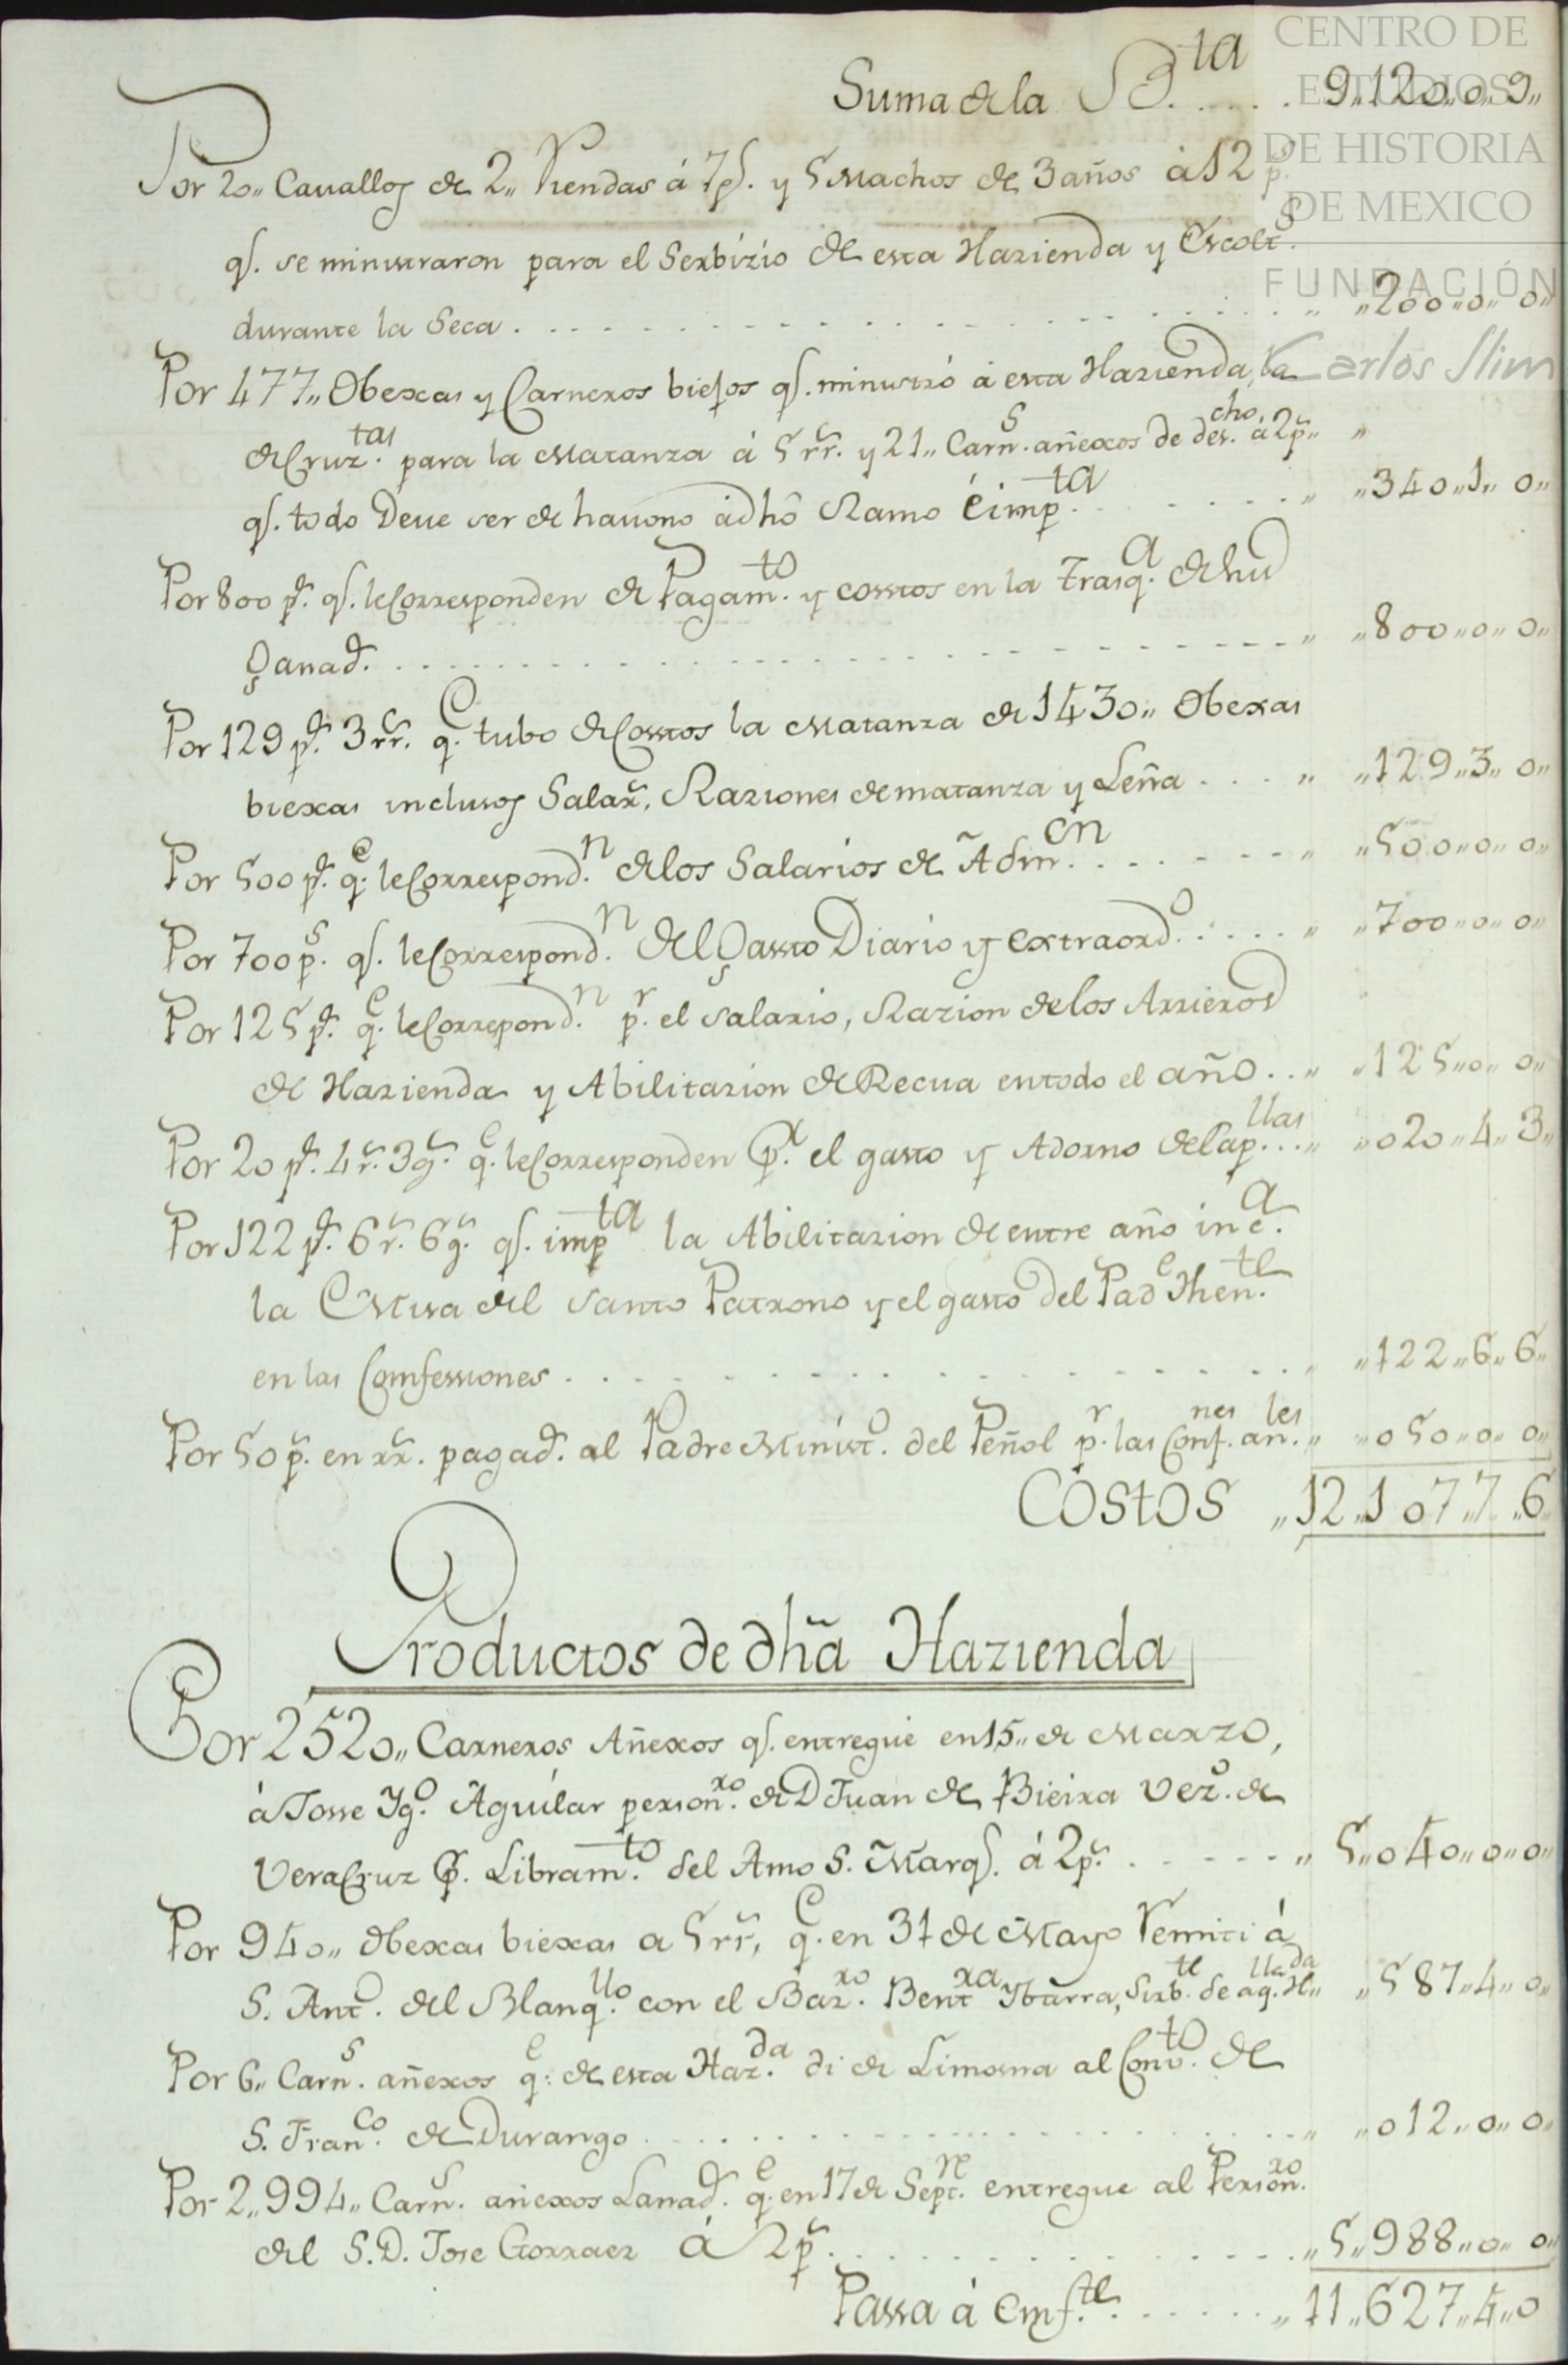 CENTRO DE
ESTUDIOS
DE HISTORIA
DE MEXICO
FUNDACIÓN
Carlos Slim
Suma de la B.ta ..... 9,,120,,0,,9,,
Por 20,, Cauallos de 2,, Riendas á 7p.s y 5 Machos de 3 años á 12 p.s
q.e se ministraron para el Serbizio de esta Hazienda y Escolt.s
durante la Seca ..... ,, ,,200,,0,,0,,
Por 477,, Obexas y Carneros biejos q.e ministró á esta Hazienda, la
de Cruz.tas para la Matanza á 5 rr.s y 21,, Carn.s añexos de des.cho á 2p.s ,, ,,
q.e todo Deue ser de hauono á dho Ramo é imp.ta ..... ,, ,,340,,1,,0,,
Por 800 p.s q.e le Corresponden de Pagam.to y costos en la Trasq.a de su
Ganad.o ..... ,, ,,800,,0,,0,,
Por 129 p.s 3 rr.s q.e tubo de Costos la Matanza de 1430,, Obexas
biexas inclusos Salar.s, Raziones de matanza y Leña .... ,, ,,129,,3,,0,,
Por 500 p.s q.e le Correspond.n de los Salarios de Adm.on ..... ,, ,,500,,0,,0,,
Por 700 p.s q.e le Correspond.n del Gasto Diario y extraord.o ..... ,, ,,700,,0,,0,,
Por 125 p.s q.e le Correspond.n p.r el salario, Razion de los Arrieros
de Hazienda y Abilitazion de Recua en todo el año .. ,, ,,125,,0,,0,,
Por 20 p.s 4 r.s 3 g.s q.e le Corresponden p.a el gasto y Adorno de Cap.llas ... ,, ,,020,,4,,3,,
Por 122 p.s 6 r.s 6 g.s q.e imp.ta la Abilitazion de entre año inc.a
la Misa del Santo Patrono y el gasto del Pad.e Then.te
en las Comfessiones ..... ,, ,,122,,6,,6,,
Por 50 p.s en rr.s pagad.s al Padre Minist.o del Peñol p.r las Conf.nes an.les ,, ,,050,,0,,0,,
Costos ,,12,,107,,7,,6,,
Productos de dha Hazienda
Por 2520,, Carneros Añexos q.e entregué en 15,, de Marzo,
á Josse Yg.o Aguílar person.ro de D Juan de Bieira Vez.o de
VeraCruz p.r Libram.to del Amo S. Marq.s á 2p.s ..... ,, 5,,040,,0,,0,,
Por 940,, obexas biexas a 5 rr.s, q.e en 31 de Mayo Remiti á
S. Ant.o del Blanq.llo con el Baz.ro Bent.ra Ybarra, Sirb.te de aq.lla H.da ,, ,,587,,4,,0,,
Por 6,, Carn.s añexos q.e de esta Haz.da di de Limosna al Conv.to de
S. Fran.co de Durango ..... ,, ,,012,,0,,0,,
Por 2,,994,, Carn.s añexos Lanad.s q.e en 17 de Sept.re entregue al Person.ro
del S.D. Jose Gorraez á 2p.s ..... ,,5,,988,,0,,0,,
Passa á Emf.te ..... ,,11,,627,,4,,0